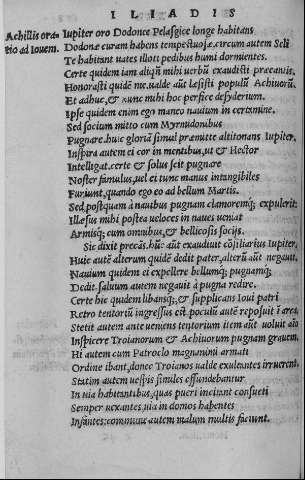 ILIADIS
Achillis ora-
tio ad Iouem.
Iupiter oro Dodonee Pelasgice longe habitans
Dodonæ curam habens tempestuosæ. circum autem Selli
Te habitant uates illoti pedibus humi dormientes.
Certe quidem iam aliqñ mihi uerbũ exaudisti præcantis.
Honorasti quidẽ me. ualde aũt læsisti populũ Achiuorũ.
Et adhuc, & nunc mihi hoc perfice desyderium.
Ipse quidem enim ego maneo nauium in certamine.
Sed socium mitto cum Myrmidonibus
Pugnare. huic gloriã simul præmitte altitonans Iupiter.
Inspira autem ei cor in mentibus, ut & Hector
Intelligat. certe & solus scit pugnare
Noster famulus, uel ei tunc manus intangibiles
Furiunt, quando ego eo ad bellum Martis.
Sed postquam à nauibus pugnam clamoremq; expulerit:
Illæsus mihi postea ueloces in naues ueniat
Armisq; cum omnibus, & bellicosis socijs.
Sic dixit precãs. hũc aũt exaudiuit cõsiliarius Iupiter,
Huic autẽ alterum quidẽ dedit pater, alterũ aũt negauit.
Nauium quidem ei expellere bellumq; pugnamq;
Dedit. saluum autem negauit à pugna redire.
Certe hic quidem libansq;, & supplicans Ioui patri
Retro tentoriũ ingressus est. poculũ autẽ reposuit ĩ arca.
Stetit autem ante ueniens tentorium. item aũt uoluit aĩo
Inspicere Troianorum & Achiuorum pugnam grauem.
Hi autem cum Patroclo magnanimi armati
Ordine ibant, donec Troianos ualde exultantes irruerent.
Statim autem uespis similes effundebantur
In uia habitantibus, quas pueri incitant consueti
Semper uexantes, uia in domos habentes
Infantes: commune autem malum multis faciunt.